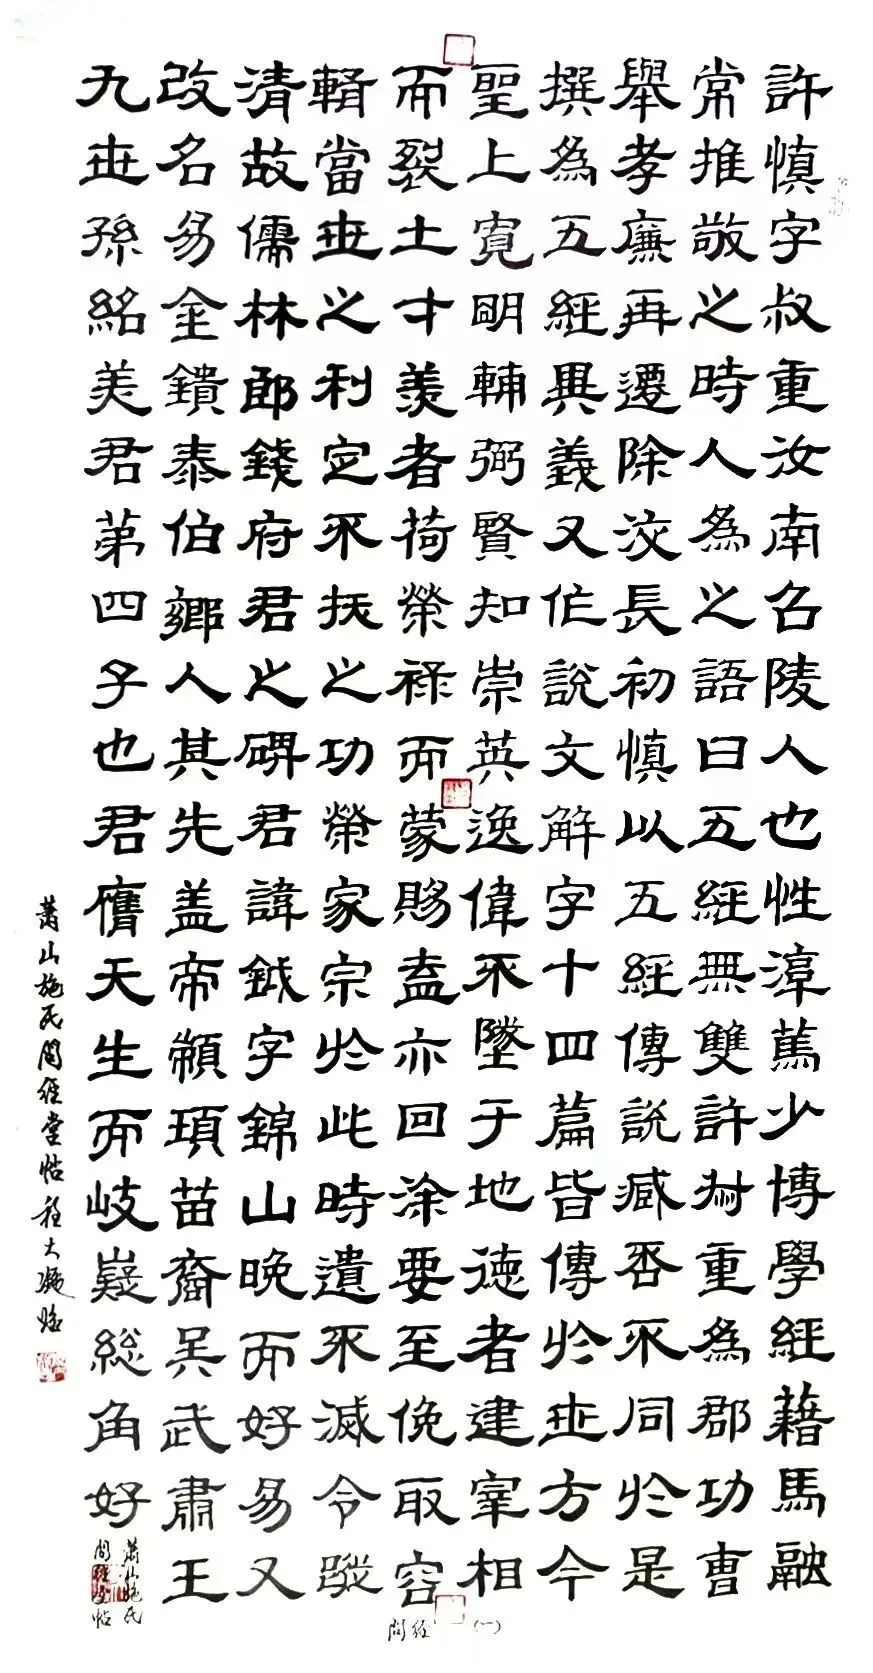 許慎字叔重汝南召陵人也性淳篤少博學經藉馬融
常推敬之時人為之語曰五經無雙許叔重為郡功曹
舉孝廉再遷除洨長初慎以五經傳說臧否不同於是
撰為五經異義又作說文解字十四篇皆傳於世方今
聖上寬明輔弼賢知崇英逸偉不墜于地德者建宰相
而裂土才羨者荷榮祿而蒙賜盍亦回塗要至俛取容
輯當世之利定不拔之功榮家宗於此時遺不滅令蹤
清故儒林郎錢府君之碑君諱鉞字錦山晚而好易又
改名易金鐀泰伯鄉人其先盖帝顓頊苗裔吳武肅王
九世孫紹美君第四子也君膺天生而岐嶷総角好
蕭山施氏
問經堂帖
蕭山施氏問經堂帖程大凝臨
問經 (一)